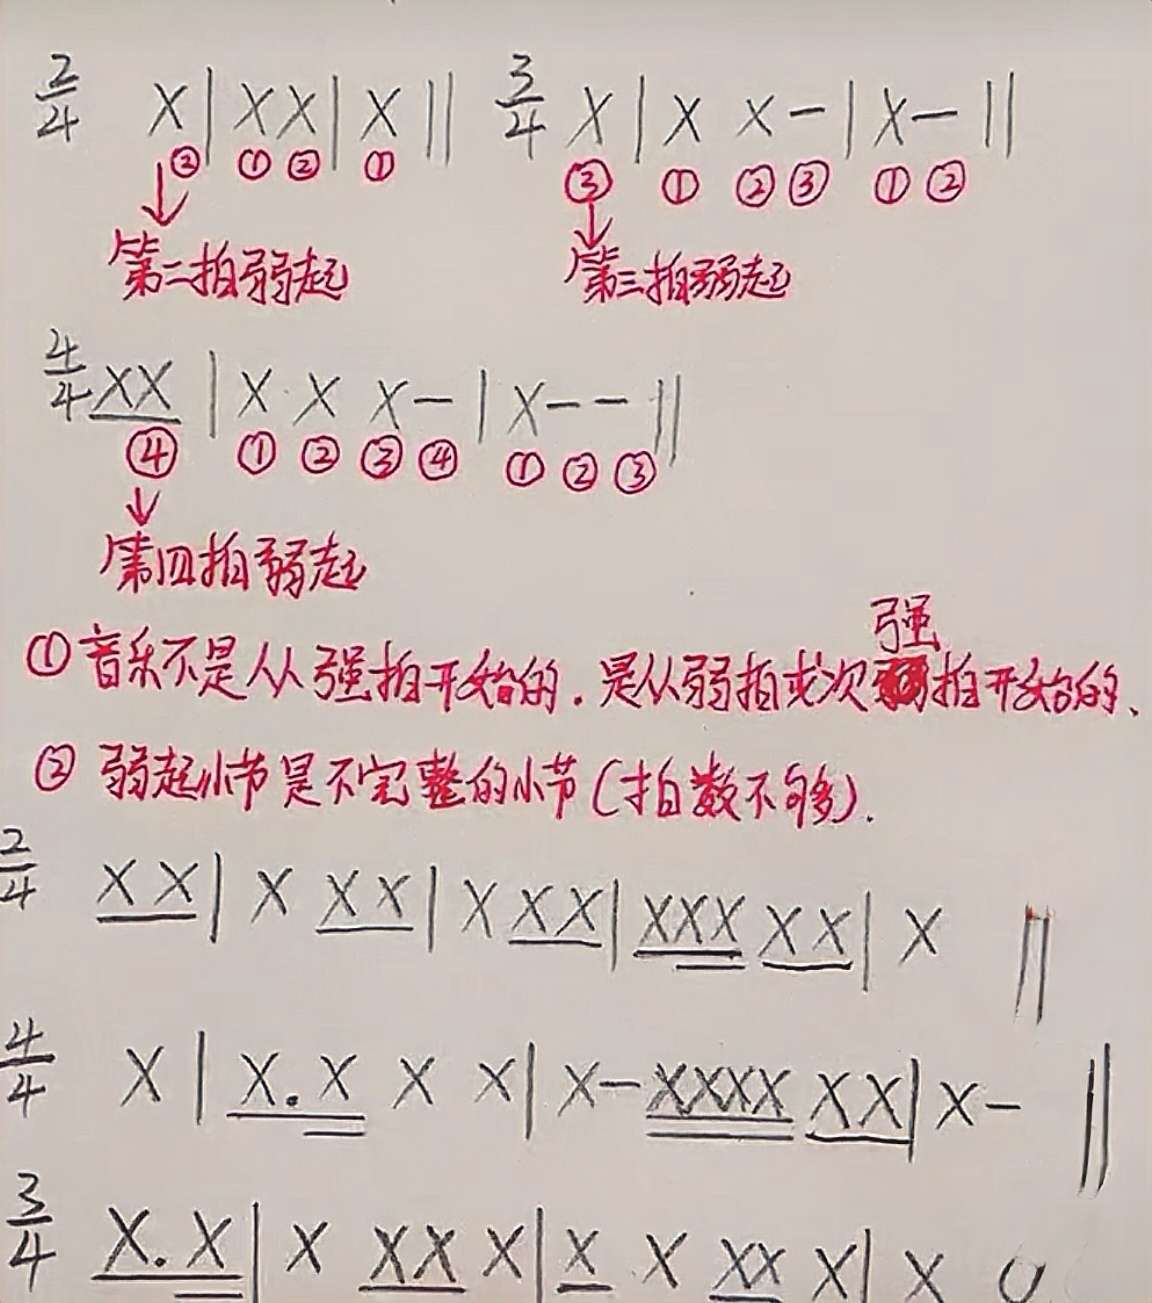 2/4 X | X X | X || 3/4 X | X X – | X – ||
② ① ② ① ③ ① ② ③ ① ②
第二拍弱起 第三拍弱起
4/4 XX | X X X – | X – – ||
④ ① ② ③ ④ ① ② ③
第四拍弱起
强
① 音乐不是从强拍开始的.是从弱拍或次拍开始的、
② 弱起小节是不完整的小节(拍数不够).
2/4 X X | X X X | X X X | XXX X X | X ||
4/4 X | X. X X X | X – XXXX XX | X – ||
3/4 X. X | X XX X | X X XX X | X 0